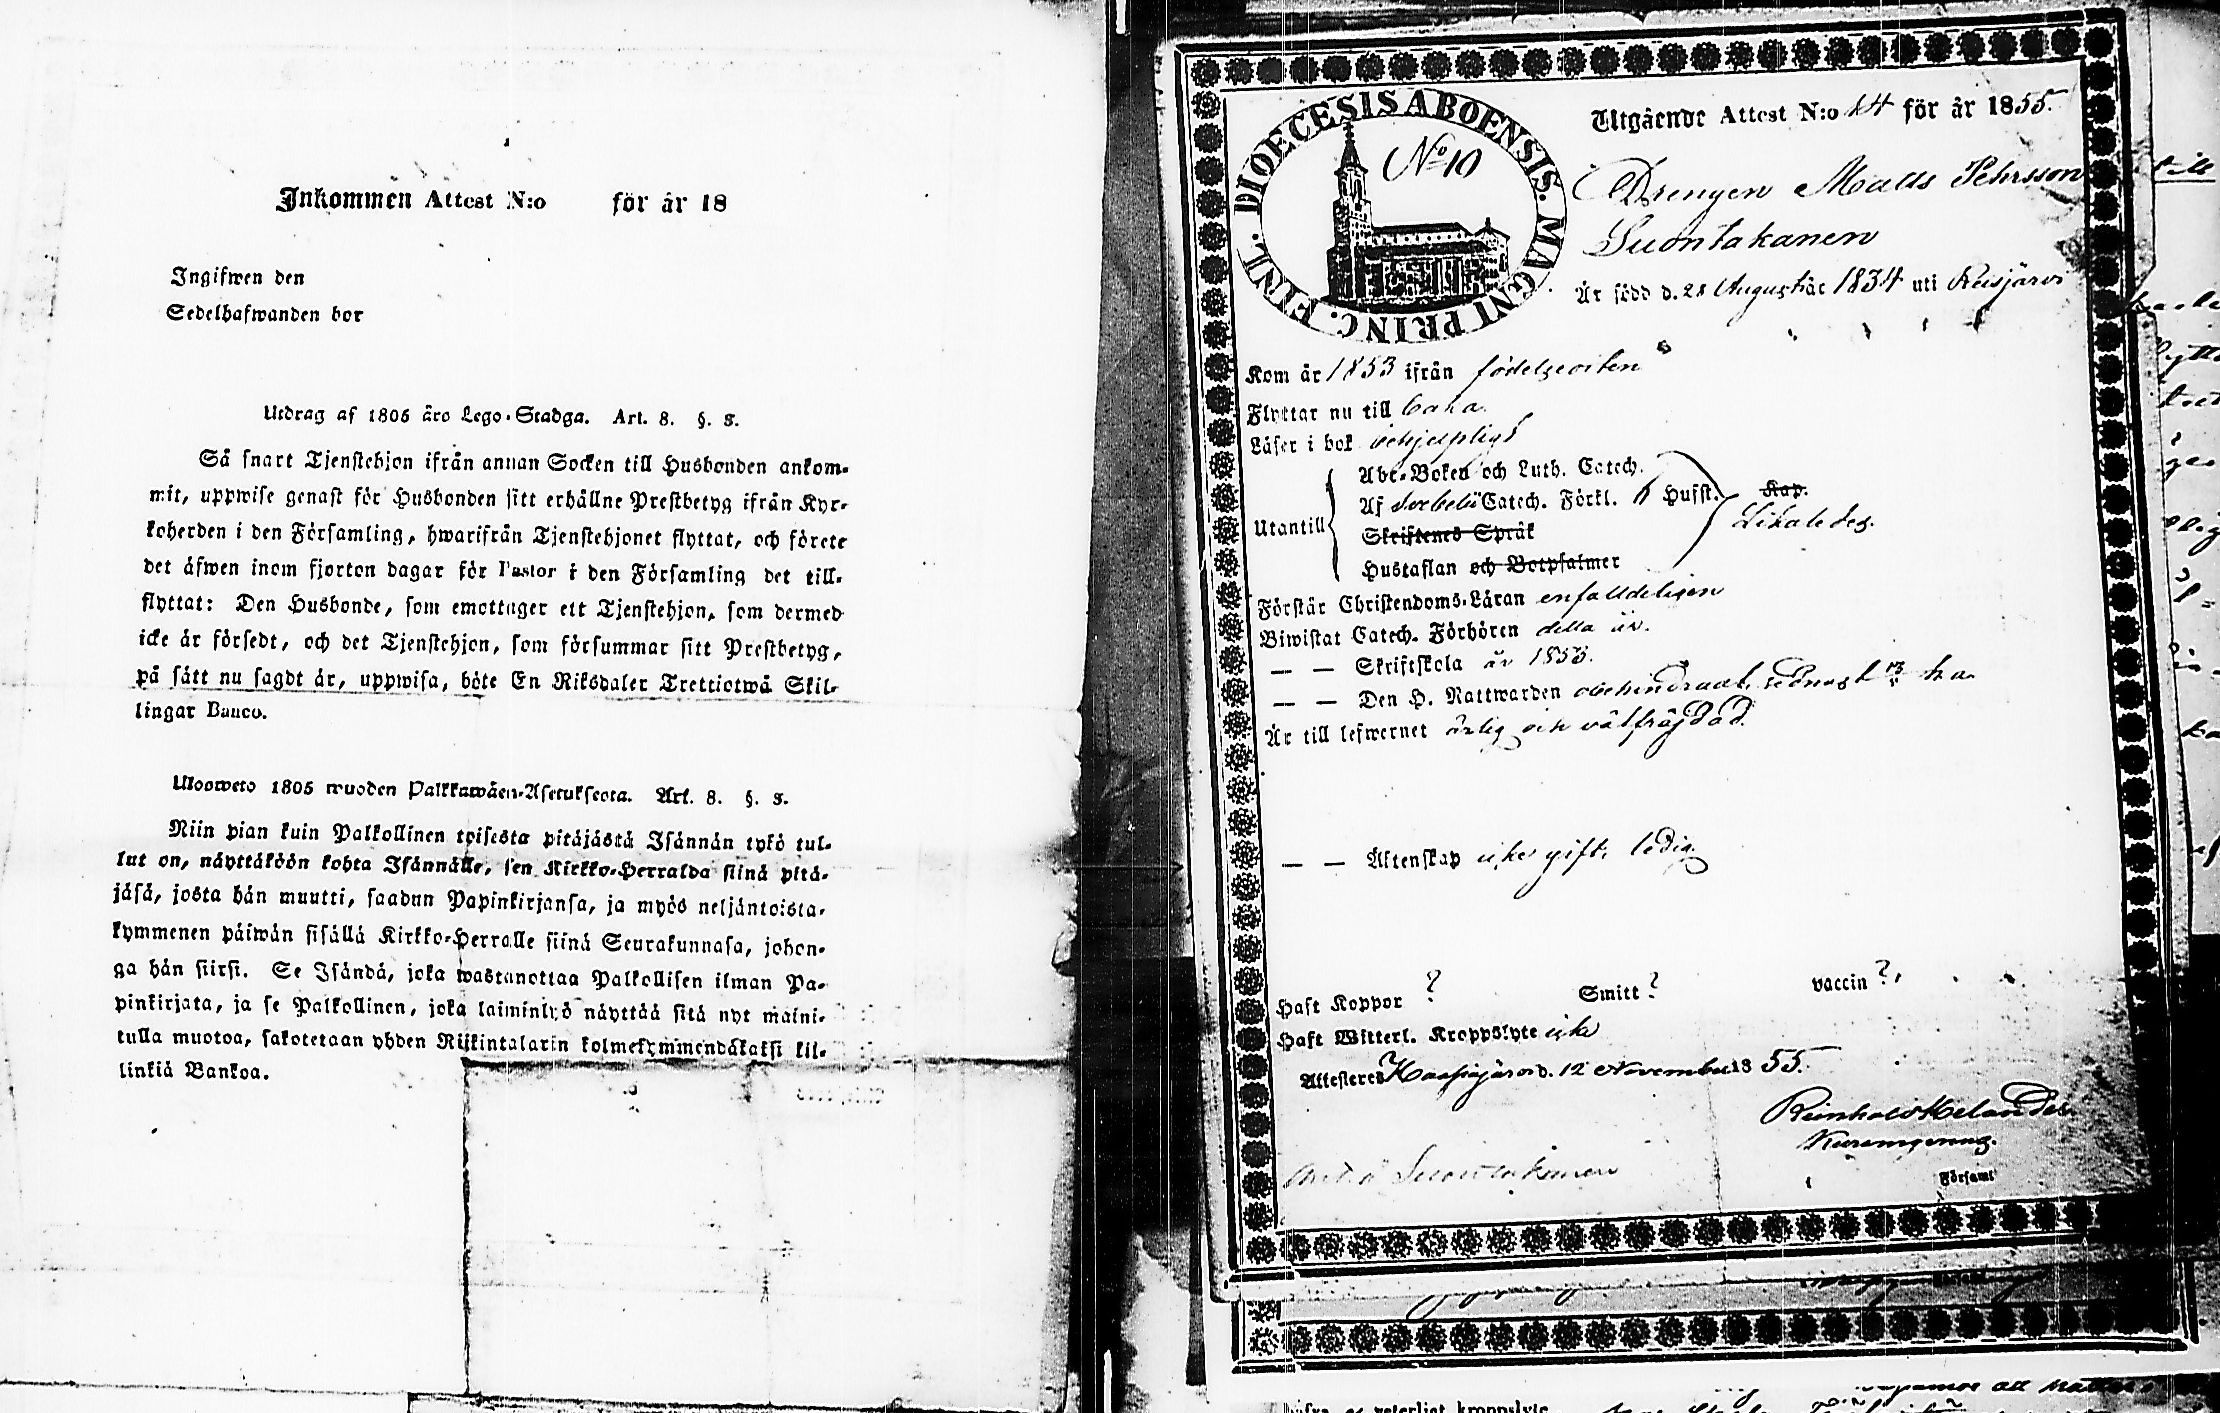 Inkommen Attest N:o för år 18
Ingifwen den
Sedelhafwanden bor
Utdrag af 1805 års Lego-Stadga. Art. 8. §. 3.
Så snart Tjenstehjon ifrån annan Socken till Husbonden ankom-
mit, uppwise genast för Husbonden sitt erhållne Prestbetyg ifrån Kyr-
koherden i den Församling, hwarifrån Tjenstehjonet flyttat, och förete
det äfwen inom fjorton dagar för Pastor i den Församling det till-
flyttat: Den Husbonde, som emottager ett Tjenstehjon, som dermed
icke är försedt, och det Tjenstehjon, som försummar sitt Prestbetyg,
på sätt nu sagdt är, uppwisa, böte En Riksdaler Trettiotwå Skil-
lingar Banco.
Uloosweto 1805 wuoden Palkkawäen-Asetuksesta. Art. 8. §. 3.
Niin pian kuin Palkollinen toisesta pitäjästä Isännän tykö tul-
lut on, näyttäköön kohta Isännälle, sen Kirkko-Herralda siinä pitä-
jäsä, josta hän muutti, saadun Papinkirjansa, ja myös neljäntoista-
kymmenen päiwän sisällä Kirkko-Herralle siinä Seurakunnasa, johon-
ga hän siirsi. Se Isändä, joka wastanottaa Palkollisen ilman Pa-
pinkirjata, ja se Palkollinen, joka laiminlyö näyttää sitä nyt maini-
tulla muotoa, sakotetaan yhden Riikintalarin kolmekymmendäkaksi kil-
linkiä Bankoa.
DIOECESIS ABOENSIS. MAGNI PRINC. FINL.
No 10
Utgående Attest N:o 14 för år 1855.
Drengen Matts Pehrsson
Suontakanen
Är född d. 28 Augusti år 1834 uti Reisjärvi
Kom år 1853 ifrån födelseorten
Flyttar nu till
Läser i bok ohjelpligt
Utantill
Abc-Boken och Luth. Catech.
Af Svebelii Catech. Förkl. Husst. Kap.
Skriftenes Språk
Likaledes.
Hustaflan och Botpsalmer
Förstår Christendoms-Läran enfalldeligen
Biwistat Catech. Förhören detta år.
— — Skriftskola år 1853.
— — Den H. Nattwarden obehindradt, sednast
Är till lefwernet ärlig och välfräjdad.
— — Äktenskap icke gift, ledig
Haft Koppor ? Smitt ? vaccin ?
Haft Witterl. Kroppslyte icke
Attesteres Haapajärvi d. 12 November 1855.
Reinhold Helander
Församl
Suontakanen